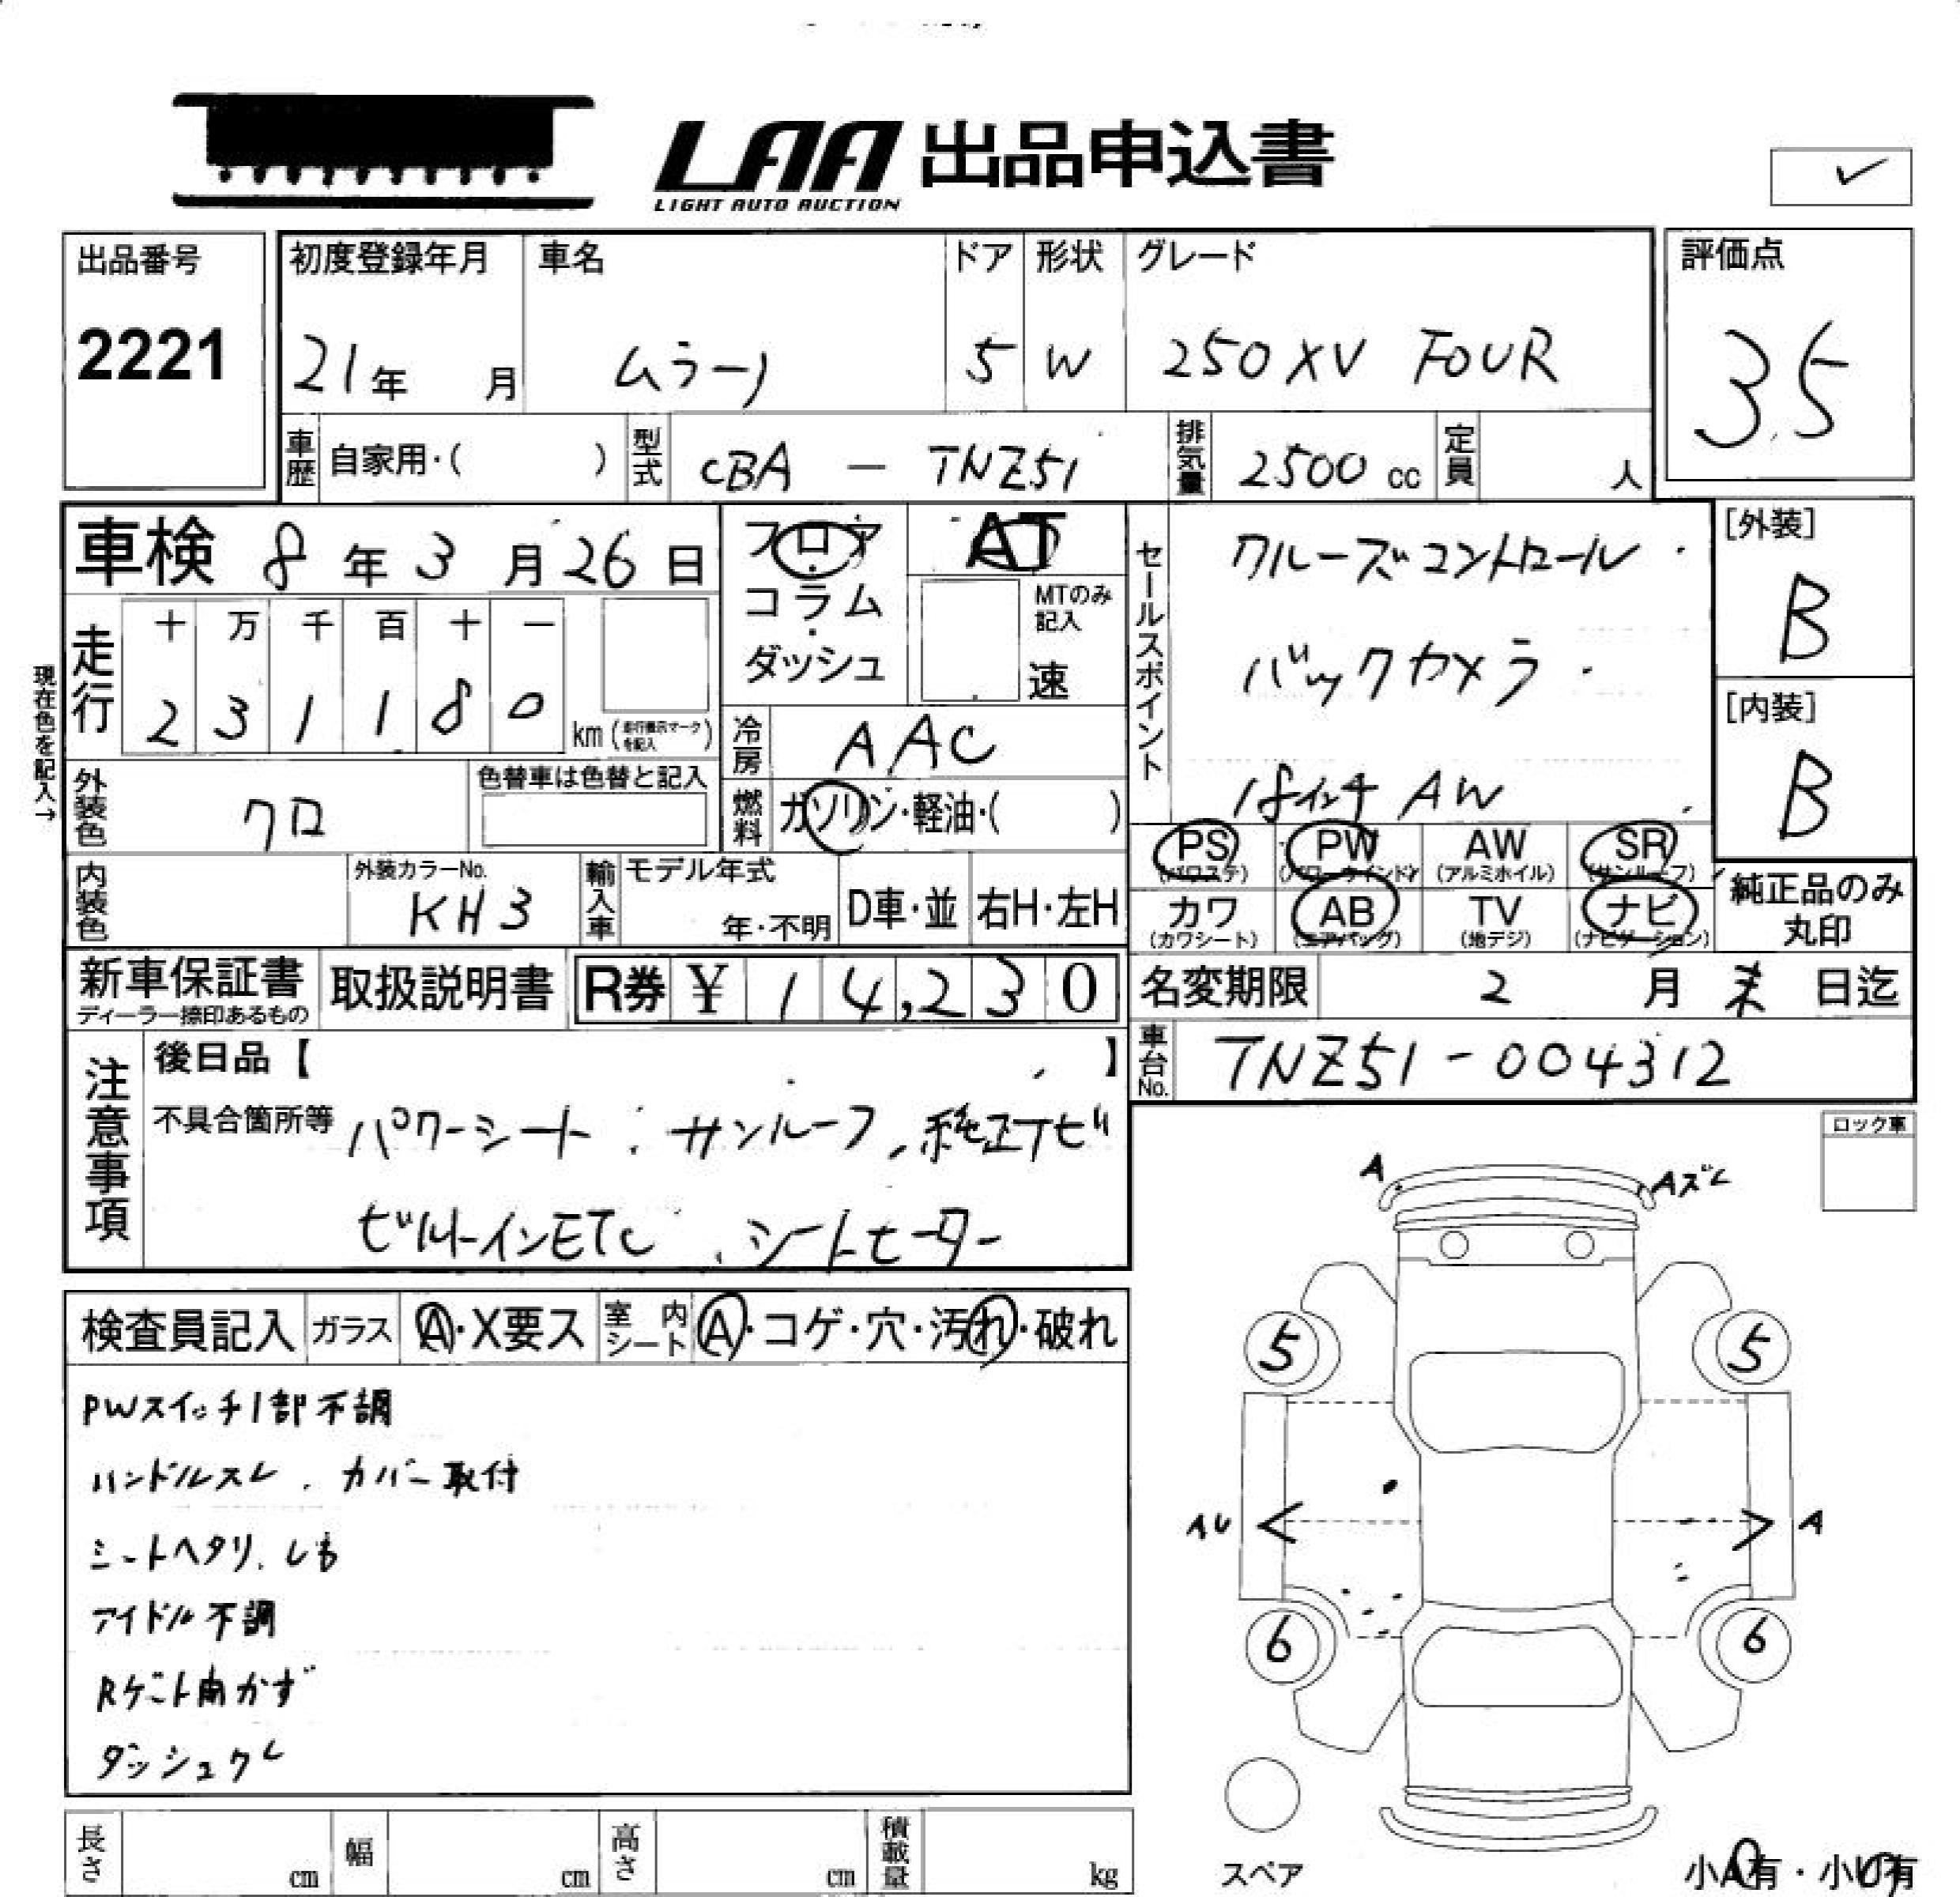 LAA 出品申込書
LIGHT AUTO AUCTION
出品番号
2221
初度登録年月
21年 月
車名
ムラーノ
ドア
5
形状
W
グレード
250XV FOUR
評価点
3.5
車歴 自家用・( )
型式 CBA - TNZ51
排気量 2500 cc
定員 人
車検 8年3月26日
フロア・コラム・ダッシュ
AT
MTのみ記入
速
セールスポイント
クルーズコントロール
バックカメラ
18インチ AW
[外装]
B
[内装]
B
現在色を記入→
走行
十 万 千 百 十 一
2 3 1 1 8 0
km (走行表示マークを記入)
冷房 AAC
外装色 クロ
色替車は色替と記入
燃料 ガソリン・軽油・( )
PS (パワステ)
PW (パワーウインドウ)
AW (アルミホイル)
SR (サンルーフ)
カワ (カワシート)
AB (エアバッグ)
TV (地デジ)
ナビ (ナビゲーション)
純正品のみ丸印
内装色
外装カラーNo.
KH3
輸入車
モデル年式
年・不明
D車・並
右H・左H
新車保証書
ディーラー捺印あるもの
取扱説明書
R券 ¥ 14,230
名変期限 2月末日迄
車台No. TNZ51-004312
注意事項
後日品【 】
不具合箇所等 パワーシート、サンルーフ、純正ナビ
ビルトインETC、シートヒーター
ロック車
検査員記入
ガラス A・X要ス
室内シート A・コゲ・穴・汚れ・破れ
PWスイッチ1部不調
ハンドルスレ、カバー取付
シートヘタリ、しも
アイドル不調
Rゲート開かず
ダッシュクレ
A
Aズレ
5
5
AU
A
6
6
スペア
小A有・小U有
長さ cm
幅 cm
高さ cm
積載量 kg